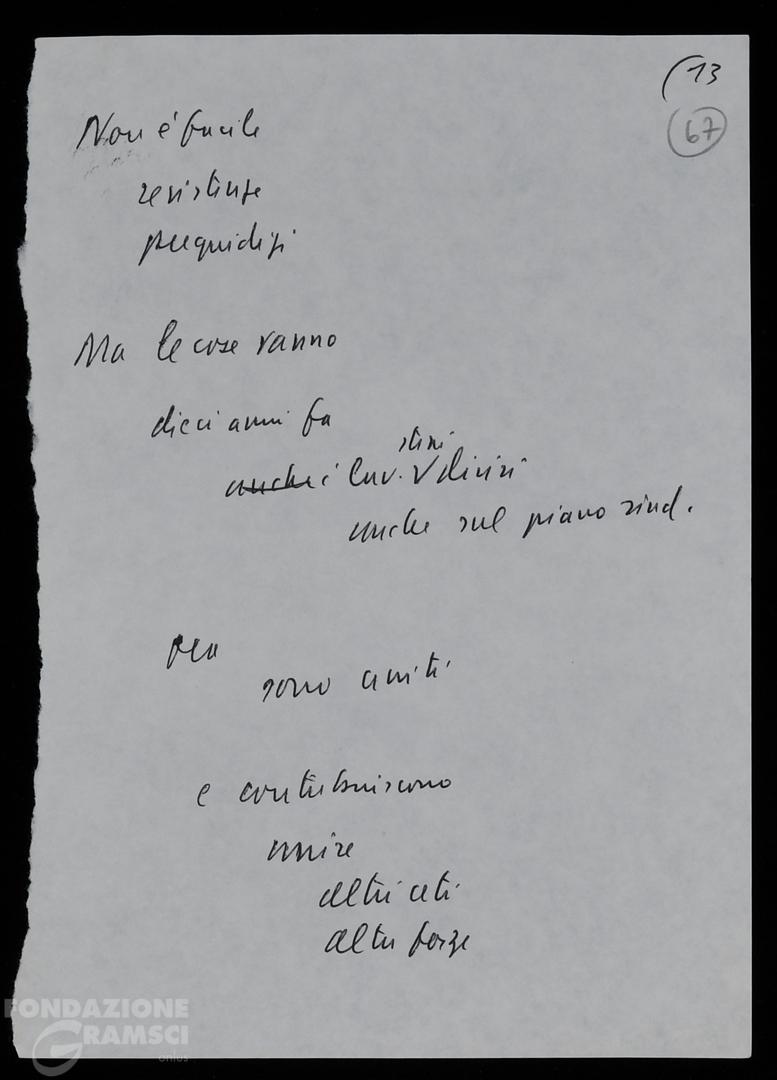 (13
67
Non è facile
resistenze
pregiudizi
Ma le cose vanno
dieci anni fa
stessi
anche i lav. divisi
anche sul piano sind.
ora
sono uniti
e contribuiscono
unire
altri ceti
altre forze
FONDAZIONE
GRAMSCI
onlus